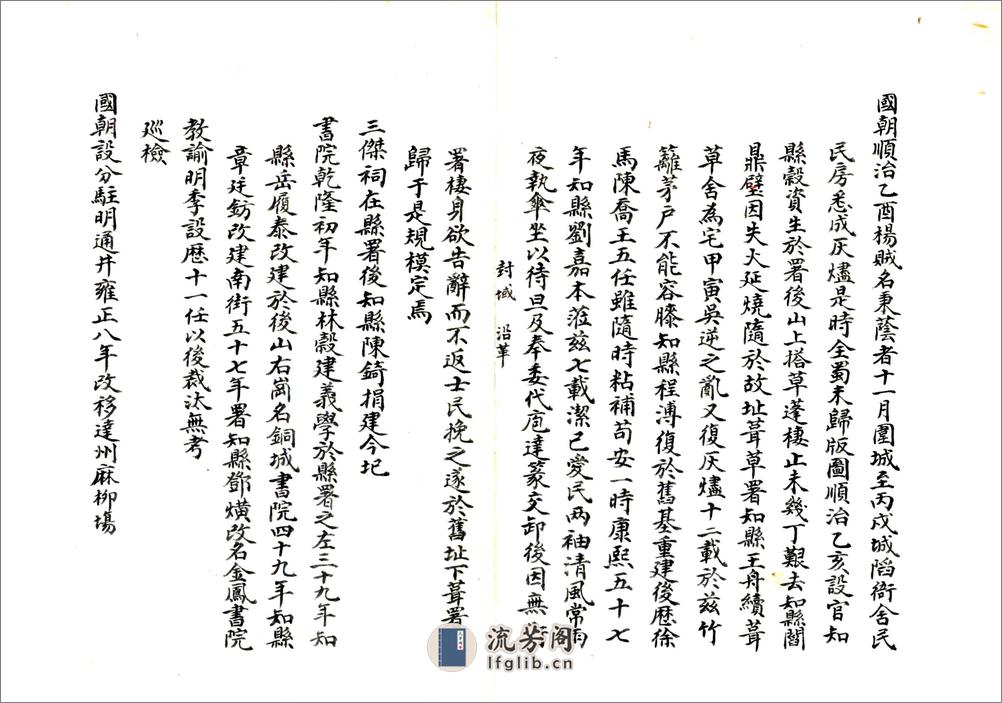 國朝順治乙酉楊賊名秉蔭者十一月圍城至丙戌城陷衙舍民
民房悉成灰燼是時全蜀未歸版圖順治乙亥設官知
縣殼資生於署後山上搭草蓬棲止未幾丁艱去知縣閻
鼎壁因失火延燒隨於故址葺草署知縣王舟續葺
草舍為宅甲寅吳逆之亂又復灰燼十二載於茲竹
籬茅戶不能容膝知縣程溥復於舊基重建後歷徐
馬陳喬王五任雖隨時粘補苟安一時康熙五十七
年知縣劉嘉本蒞茲七載潔己愛民兩袖清風常雨
夜執傘坐以待旦及奉委代庖達篆交卸後因無
封域 沿革
署棲身欲告辭而不返士民挽之遂於舊址下葺署
歸于是規模定焉
三傑祠在縣署後知縣陳錡捐建今圮
書院乾隆初年知縣林殼建義學於縣署之左三十九年知
縣岳履泰改建於後山右崗名銅城書院四十九年知縣
章廷鈁改建南街五十七年署知縣鄧熿改名金鳳書院
教諭明季設歷十一任以後裁汰無考
巡檢
國朝設分駐明通井雍正八年改移達州麻柳場
流芳阁
lfglib.cn